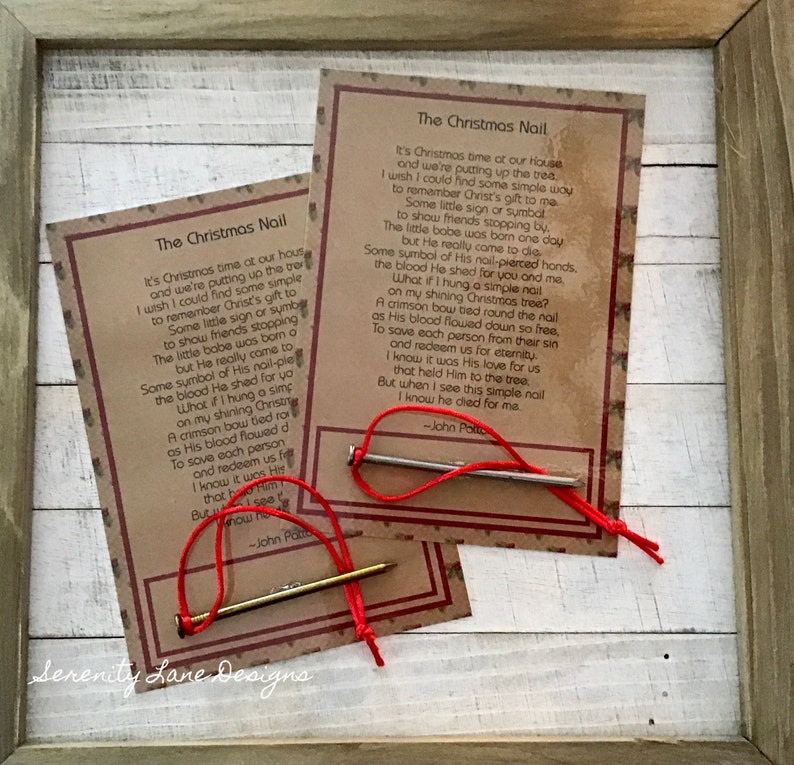 The Christmas Nail
It's Christmas time at our house
and we're putting up the tree,
I wish I could find some simple way
to remember Christ's gift to me.
Some little sign or symbol
to show friends stopping by,
The little babe was born one day
but He really came to die.
Some symbol of His nail-pierced hands,
the blood He shed for you and me,
What if I hung a simple nail
on my shining Christmas tree?
A crimson bow tied round the nail
as His blood flowed down so free,
To save each person from their sin
and redeem us for eternity.
I know it was His love for us
that held Him to the tree,
But when I see this simple nail
I know he died for me.
~John
The Christmas Nail
It's Christmas time at our
and we're putting up the
I wish I could find some simple
to remember Christ's gift to
Some little sign or
to show friends stopping
The little babe was born
but He really came to
Some symbol of His
the blood He shed for
What if I hung a
on my shining
A crimson bow tied
as His blood flowed
To save each person
and redeem us
I know it was His
that held Him
But when I see
I know he
~John
Serenity Lane Designs